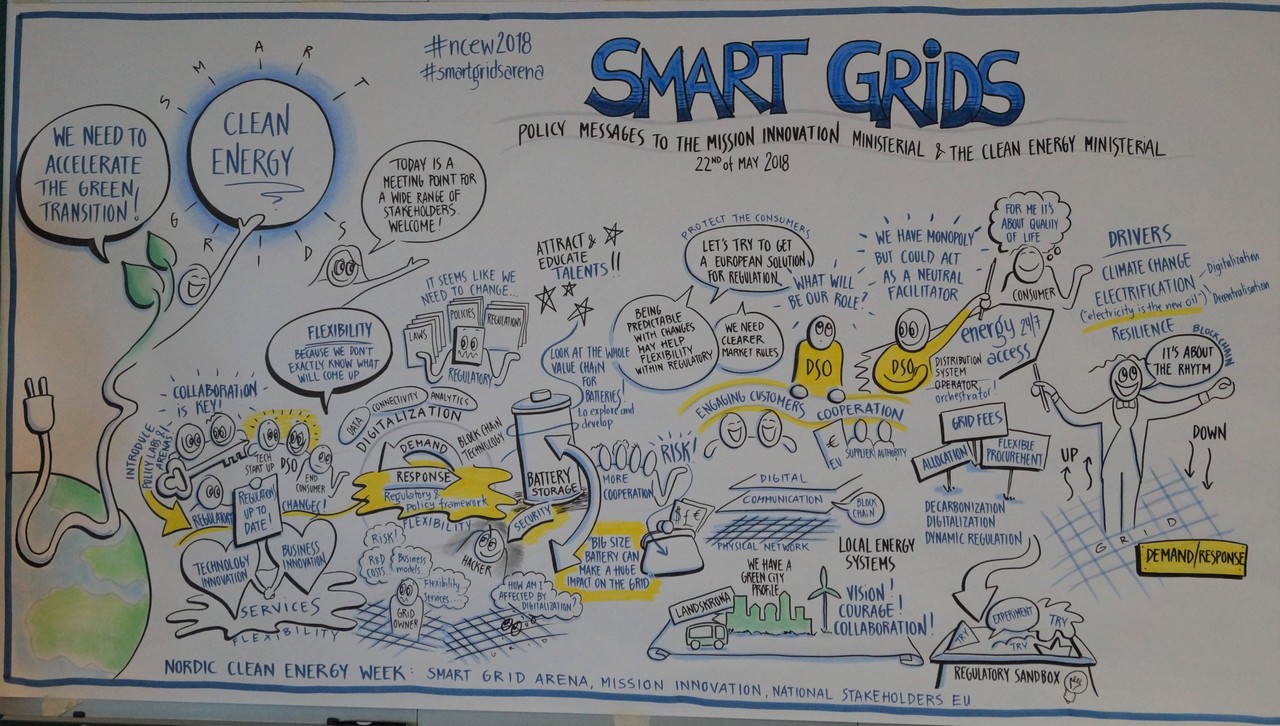 #ncew2018
#smartgridsarena
SMART GRiDS
POLICY MESSAGES TO THE MISSION INNOVATION MINISTERIAL & THE CLEAN ENERGY MINISTERIAL
22ND of MAY 2018
WE NEED TO
ACCELERATE
THE GREEN
TRANSITION!
SMART
CLEAN
ENERGY
GRIDS
TODAY IS A
MEETING POINT FOR
A WIDE RANGE OF
STAKEHOLDERS.
WELCOME!
FLEXIBILITY
BECAUSE WE DON'T
EXACTLY KNOW WHAT
WILL COME UP
IT SEEMS LIKE WE
NEED TO CHANGE...
LAWS
POLICIES
REGULATIONS
REGULATORY
ATTRACT &
EDUCATE
TALENTS!!
LOOK AT THE WHOLE
VALUE CHAIN
FOR
BATTERIES!
to explore and
develop
PROTECT THE CONSUMERS
LET'S TRY TO GET
A EUROPEAN SOLUTION
FOR REGULATION.
BEING
PREDICTABLE
WITH CHANGES
MAY HELP
FLEXIBILITY
WITHIN REGULATORY
WE NEED
CLEARER
MARKET RULES
WHAT WILL
BE OUR ROLE?
DSO
WE HAVE MONOPOLY
BUT COULD ACT
AS A NEUTRAL
FACILITATOR
DSO
DISTRIBUTION
SYSTEM
OPERATOR
orchestrator!
FOR ME IT'S
ABOUT QUALITY
OF LIFE
CONSUMER
energy 24/7
access
DRIVERS
CLIMATE CHANGE
ELECTRIFICATION
("electricity is the new oil")
RESILIENCE
Digitalization
Decentralisation
BLOCKCHAIN
IT'S ABOUT
THE RHYTM
UP
DOWN
GRID
DEMAND/RESPONSE
COLLABORATION
IS KEY!
INTRODUCE
POLICY LABS &
ARENAS!
TECH
START UP
DSO
END
CONSUMER
REGULATORY
REGULATION
UP TO
DATE!
CHANGES!
TECHNOLOGY
INNOVATION
BUSINESS
INNOVATION
SERVICES
FLEXIBILITY
DATA
CONNECTIVITY
ANALYTICS
DIGITALIZATION
BLOCK CHAIN
TECHNOLOGY
DEMAND
RESPONSE
Regulatory &
Policy framework
FLEXIBILITY
RISK!
R&D
COSTS
Business
models
Flexibility
Services
GRID
OWNER
HACKER
SECURITY
HOW AM I
AFFECTED BY
DIGITALIZATION?
GRID
BATTERY
STORAGE
MORE
COOPERATION
RISK!
$ £ €
BIG SIZE
BATTERY CAN
MAKE A HUGE
IMPACT ON THE GRID
ENGAGING CUSTOMERS
COOPERATION
€
EU
SUPPLIER
AUTHORITY
DIGITAL
COMMUNICATION
BLOCK
CHAIN
PHYSICAL NETWORK
WE HAVE A
GREEN CITY
PROFILE
LANDSKRONA
LOCAL ENERGY
SYSTEMS
VISION!
COURAGE!
COLLABORATION!
GRID FEES
ALLOCATION
FLEXIBLE
PROCUREMENT
DECARBONIZATION
DIGITALIZATION
DYNAMIC REGULATION
TRY
EXPERIMENT
TRY
TRY
REGULATORY SANDBOX
NORDIC CLEAN ENERGY WEEK: SMART GRID ARENA, MISSION INNOVATION, NATIONAL STAKEHOLDERS EU